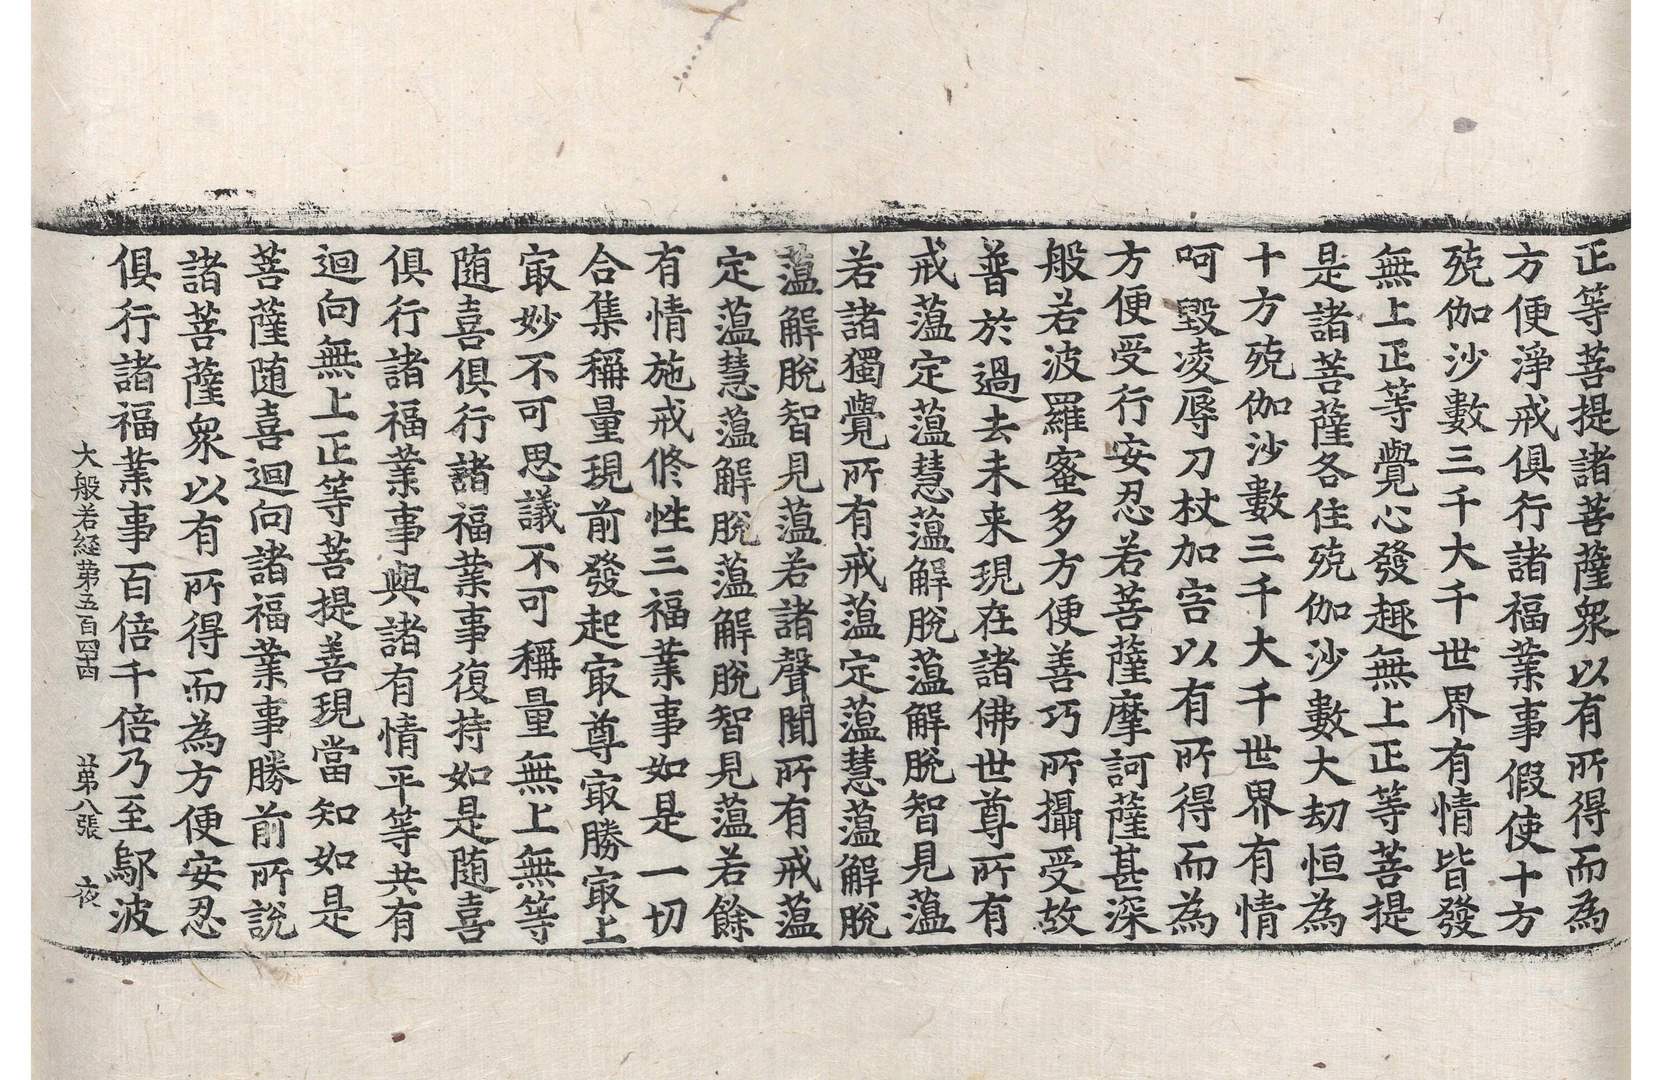 正等菩提諸菩薩衆以有所得而為
方便淨戒俱行諸福業事假使十方
殑伽沙數三千大千世界有情皆發
無上正等覺心發趣無上正等菩提
是諸菩薩各住殑伽沙數大劫恒為
十方殑伽沙數三千大千世界有情
呵毀凌辱刀杖加害以有所得而為
方便受行安忍若菩薩摩訶薩甚深
般若波羅蜜多方便善巧所攝受故
普於過去未来現在諸佛世尊所有
戒蕰定蕰慧蕰解脫蕰解脫智見蕰
若諸獨覺所有戒蕰定蕰慧蕰解脫
蕰解脫智見蕰若諸聲聞所有戒蕰
定蕰慧蕰解脫蕰解脫智見蕰若餘
有情施戒修性三福業事如是一切
合集稱量現前發起㝡尊㝡勝㝡上
㝡妙不可思議不可稱量無上無等
随喜俱行諸福業事復持如是随喜
俱行諸福業事與諸有情平等共有
迴向無上正等菩提善現當知如是
菩薩随喜迴向諸福業事勝前所說
諸菩薩衆以有所得而為方便安忍
俱行諸福業事百倍千倍乃至鄔波
大般若経第五百四十四 第八張 夜